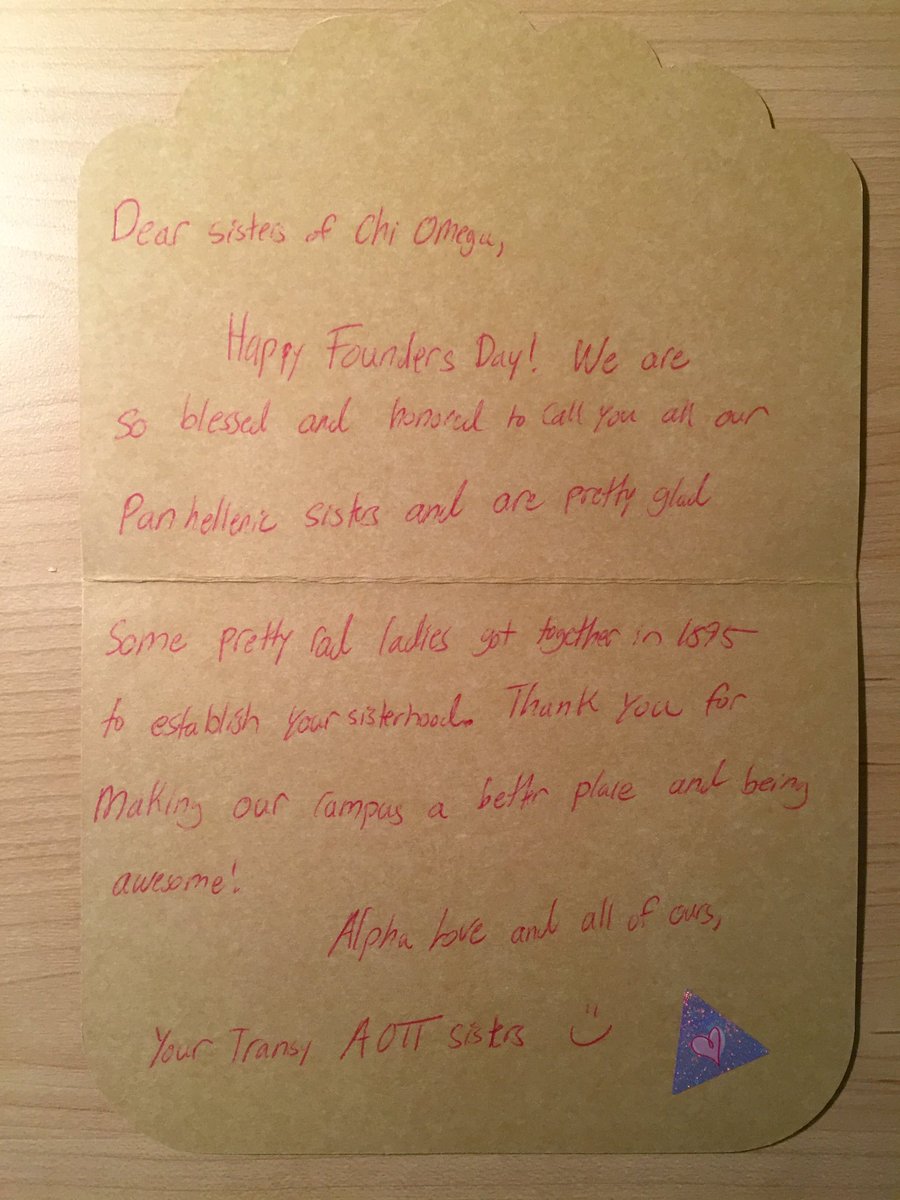 Dear sisters of Chi Omega,
Happy Founders Day! We are
so blessed and honored to call you all our
Panhellenic sisters and are pretty glad
Some pretty rad ladies got together in 1895
to establish your sisterhood. Thank you for
Making our campus a better place and being
awesome!
Alpha Love and all of ours,
Your Transy AOΠ sisters :)